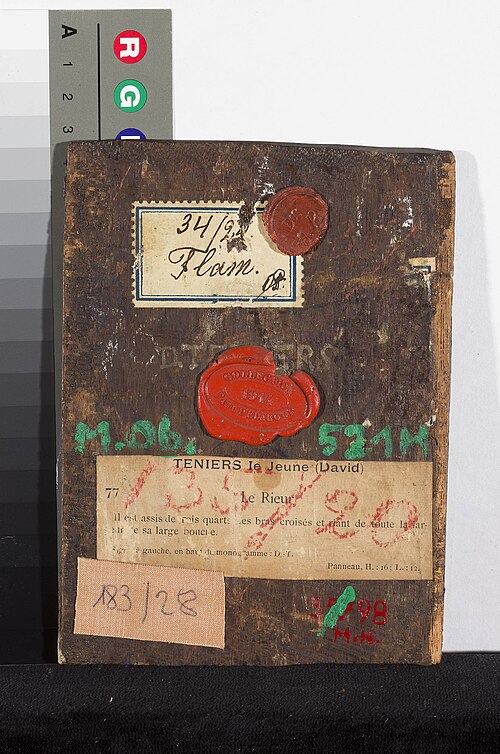 A
1
2
3
R
G
34/
Flam.
08.
D. T
COLLECTION
M.Ob. 521M
TENIERS le Jeune (David)
77 Le Rieur
Il est assis de quarts, les bras croisés et riant de toute la
sa large bouche.
gauche, en haut du monogramme: D.-T.
Panneau, H.: 16; L.: 12.
/20
183/28
/98